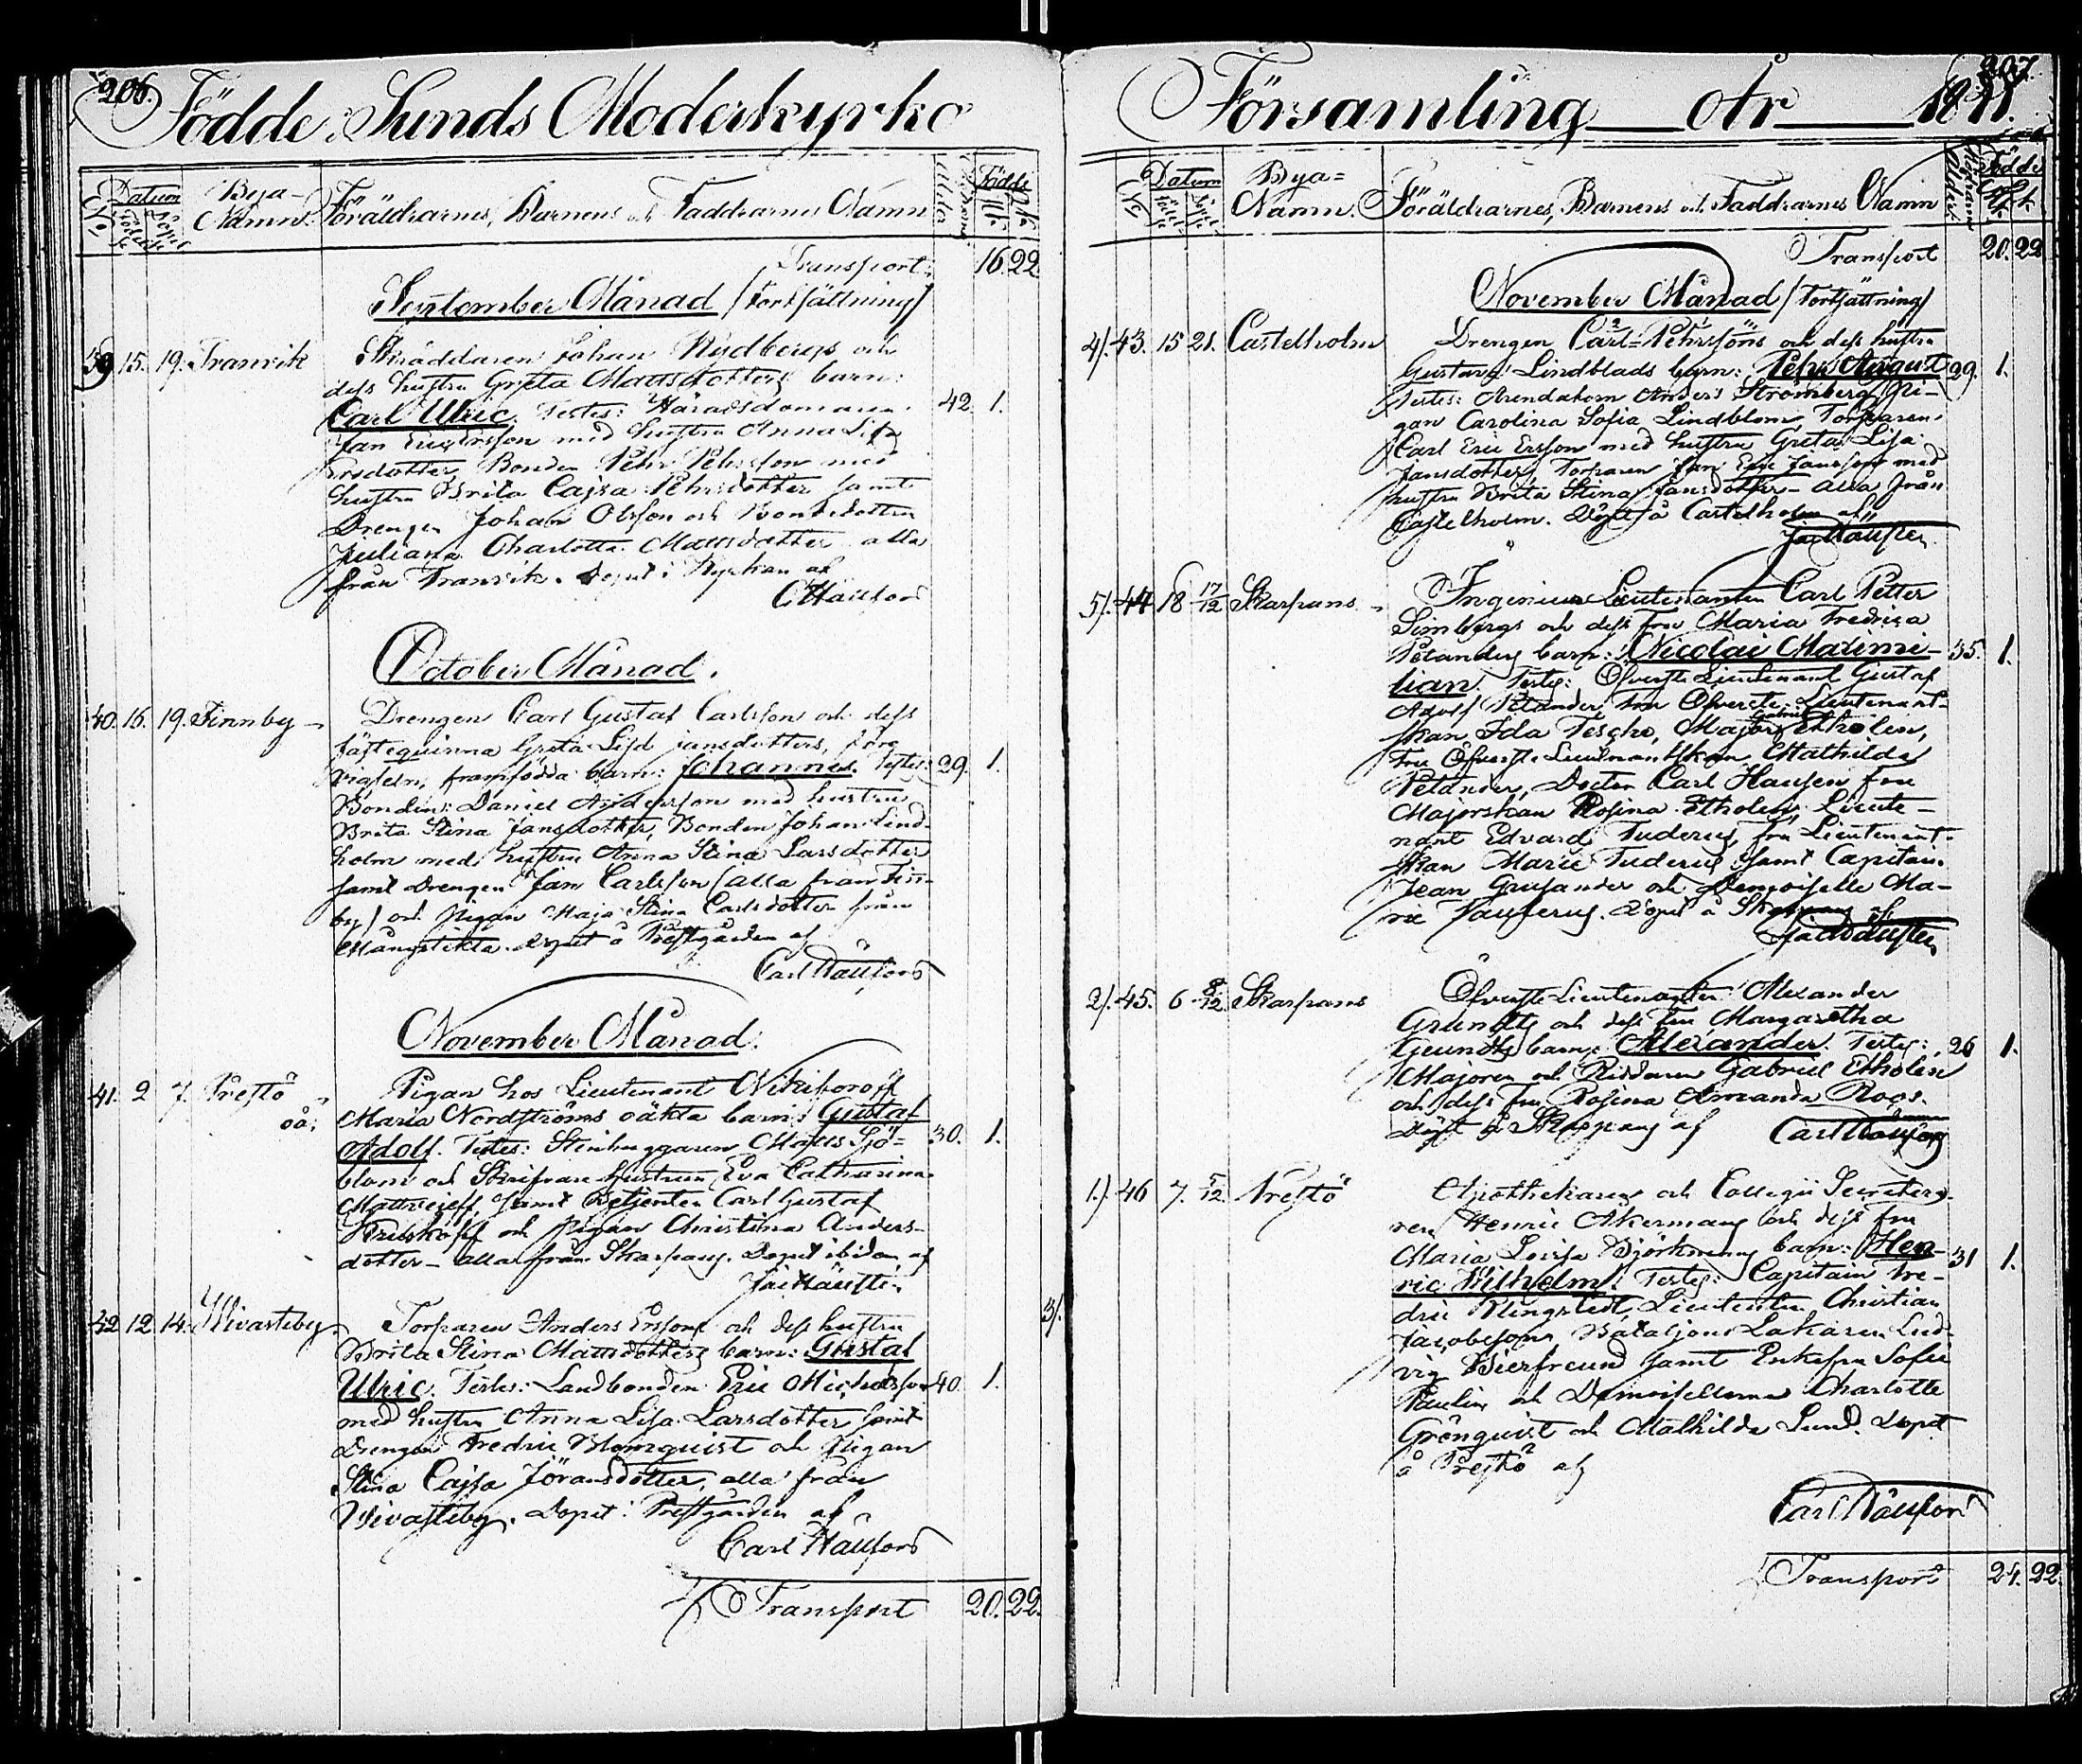 206.
Födde i Sunds Moderkyrko
No
Datum
Födelse
Döpelse
Bya-
Namn.
Föräldrarnes, Barnens och Faddrarnes Namn
Ålder
Födde
Transport: 16. 22
September Månad /Fortsättning/
39 15. 19. Tranvik Skräddaren Johan Rydbergs och
dess hustru Greta Mattsdotters barn:
Carl Ulric. Testes: Häradsdomaren 42. 1.
Jan Eric Ersson med hustru Anna Lisa
Ersdotter, Bonden Pehr Pehrsson med
hustru Brita Cajsa Pehrsdotter samt
Drengen Johan Olsson och Bondedottren
Juliana Charlotta Mattsdotter alla
från Tranvik. Döpt i Kyrkan af
October Månad.
40. 16. 19. Finnby Drengen Carl Gustaf Carlsson och dess
fästeqvinna Greta Lisa Jansdotters, före
vigseln, framfödda barn: Johannes. Testes: 29. 1.
Bonden: Daniel Andersson med hustru
Brita Stina Jansdotter, Bonden Johan Lind-
holm med hustru Anna Stina Larsdotter
samt Drengen Jan Carlsson /alla från Finn-
by/ och Pigan Maja Stina Carlsdotter från
Mångstekta. Döpt å Prestgården af
November Månad.
41. 2 7. Prestö Pigan hos Lieutenant Nikiforoff
oä: Maria Nordströms oäkta barn: Gustaf
Adolf. Testes: Stenhuggaren Matts Sjö= 30. 1.
blom och Skrifvare hustrun Eva Catharina
Mattvejeff, samt Betjenten Carl Gustaf
och Pigan Christina Anders-
dotter - alla från Skarpans. Döpt ibidem af
42 12 14. Wivasteby Torparen Anders Erssons och dess hustru
Brita Stina Mattsdotters barn: Gustaf
Ulric. Testes: Landbonden Eric Michelsson 40. 1.
med hustru Anna Lisa Larsdotter samt
Drengen Fredric Blomquist och Pigan
Stina Cajsa Jöransdotter, alla från
Wivasteby. Döpt i Prestgården af
Transport 20. 22.
207.
Församling År 1841.
No
Datum
Bya=
Namn.
Föräldrarnes, Barnens och Faddrarnes Namn
Ålder
Födde
Transport 20. 22
November Månad /Fortsättning/
4/. 43. 15 21. Castelholm Drengen Carl Pehrssons och dess hustru
Gustava Lindblads barn: Pehr August 29. 1.
Testes: Arendatorn Anders Strömberg, Pi-
gan Carolina Sofia Lindblom, Torparen
Carl Eric Ersson med hustru Greta Lisa
Jansdotter, Torparen Jan Eric Jansson med
hustru Brita Stina Jansdotter - alla från
Castelholm. Döpt å Castelholm af
5/. 44 18 17/12 Skarpans Ingenieur Lieutenanten Carl Petter
Limbergs och dess fru Maria Fredrica
Petanders barn: Nicolai Maximi- 35. 1.
lian. Testes: Öfverste Lieutenant Gustaf
Adolf Petander, fru Öfverste Lieutenant-
skan Ida Tesche, Major Gabriel Etholén,
Fru Öfverste Lieutnantskan Mathilda
Petander, Doctor Carl Hausen fru
Majorskan Rosina Etholén, Lieute-
nant Edvard Tuderus, fru Lieutenant-
skan Marie Tuderus samt Capitain
Jean och Demoiselle Ma-
rie. Döpt å Skarpans af
2/. 45. 6 8/12 Skarpans Öfverste Lieutenanten Alexander
Grundts och dess Fru Margaretha
Grundts barn: Alexander. Testes: 26 1.
Majoren och Riddaren Gabriel Etholén
och dess fru Rosina Amanda Roos.
Döpt å Skarpans af
1/. 46 7. 5/12. Prestö Apothekaren och Collegii Secretera-
ren Henric Åkermans och dess fru
Maria Lovisa Björkmans barn: Hen- 31 1.
ric Wilhelm. Testes: Capitain Fre-
dric Klingstedt, Lieutenten Christian
Jacobsson, Bataljons Läkaren Lud-
vig Bierfreund samt Enkefru Sofie
Paulin och Demoisellerna Charlotte
Grönquist och Mathilda Lund. Döpt
å Prestö af
3/.
Transport 24. 22.